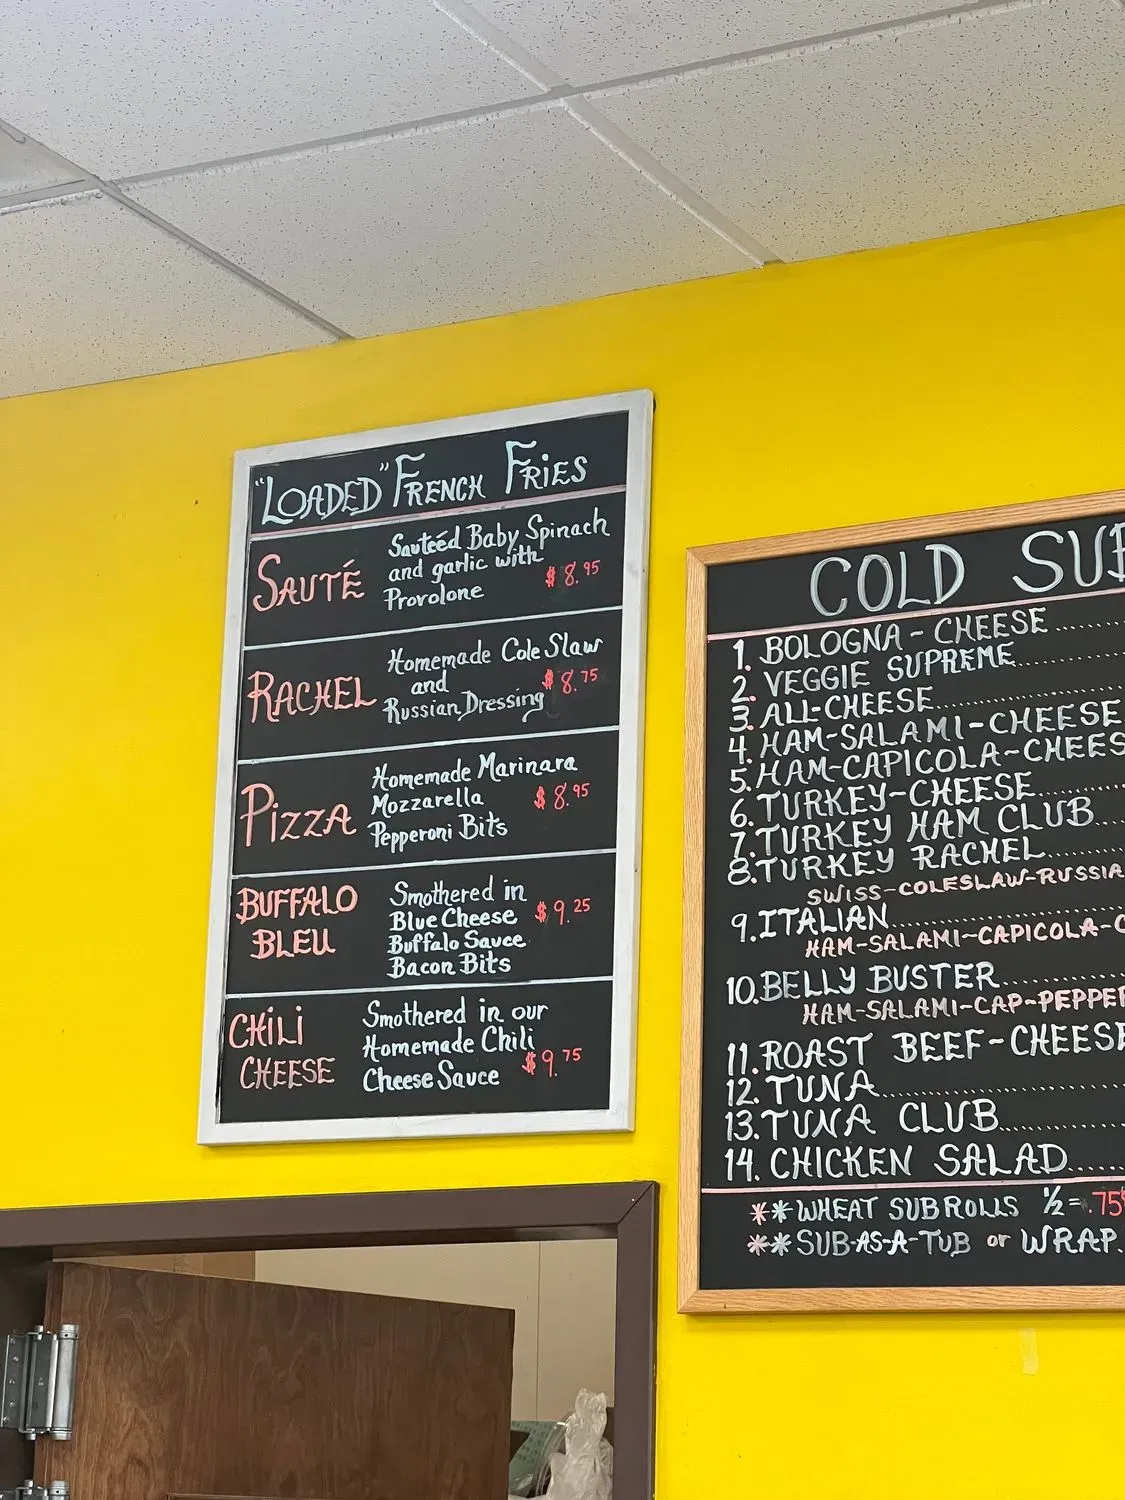 "LOADED" FRENCH FRIES
SAUTÉ
Sauteéd Baby Spinach
and garlic with
Provolone
$8.95
RACHEL
Homemade Cole Slaw
and
Russian Dressing
$8.75
PIZZA
Homemade Marinara
Mozzarella
Pepperoni Bits
$8.95
BUFFALO
BLEU
Smothered in
Blue Cheese
Buffalo Sauce
Bacon Bits
$9.25
CHILI
CHEESE
Smothered in our
Homemade Chili
Cheese Sauce
$9.75
COLD SUB
1. BOLOGNA - CHEESE
2. VEGGIE SUPREME
3. ALL-CHEESE
4. HAM-SALAMI-CHEESE
5. HAM-CAPICOLA-CHEES
6. TURKEY-CHEESE
7. TURKEY HAM CLUB
8. TURKEY RACHEL
SWISS-COLESLAW-RUSSIA
9. ITALIAN
HAM-SALAMI-CAPICOLA-C
10. BELLY BUSTER
HAM-SALAMI-CAP-PEPPER
11. ROAST BEEF-CHEESE
12. TUNA
13. TUNA CLUB
14. CHICKEN SALAD
**WHEAT SUB ROLLS ½=.75¢
**SUB-AS-A-TUB or WRAP.